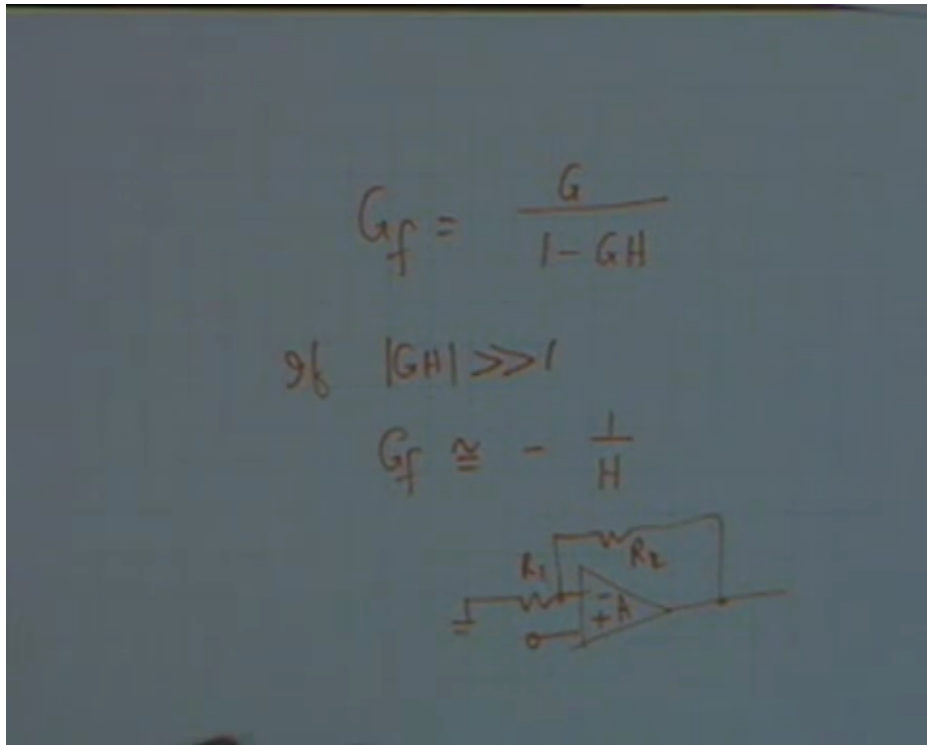 G_f = G / 1 - GH
If |GH| >> 1
G_f ≅ - 1 / H
R1 R2
- A
+